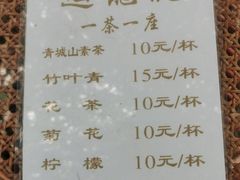 一茶一座
青城山素茶 10元/杯
竹叶青 15元/杯
花茶 10元/杯
菊花 10元/杯
柠檬 10元/杯